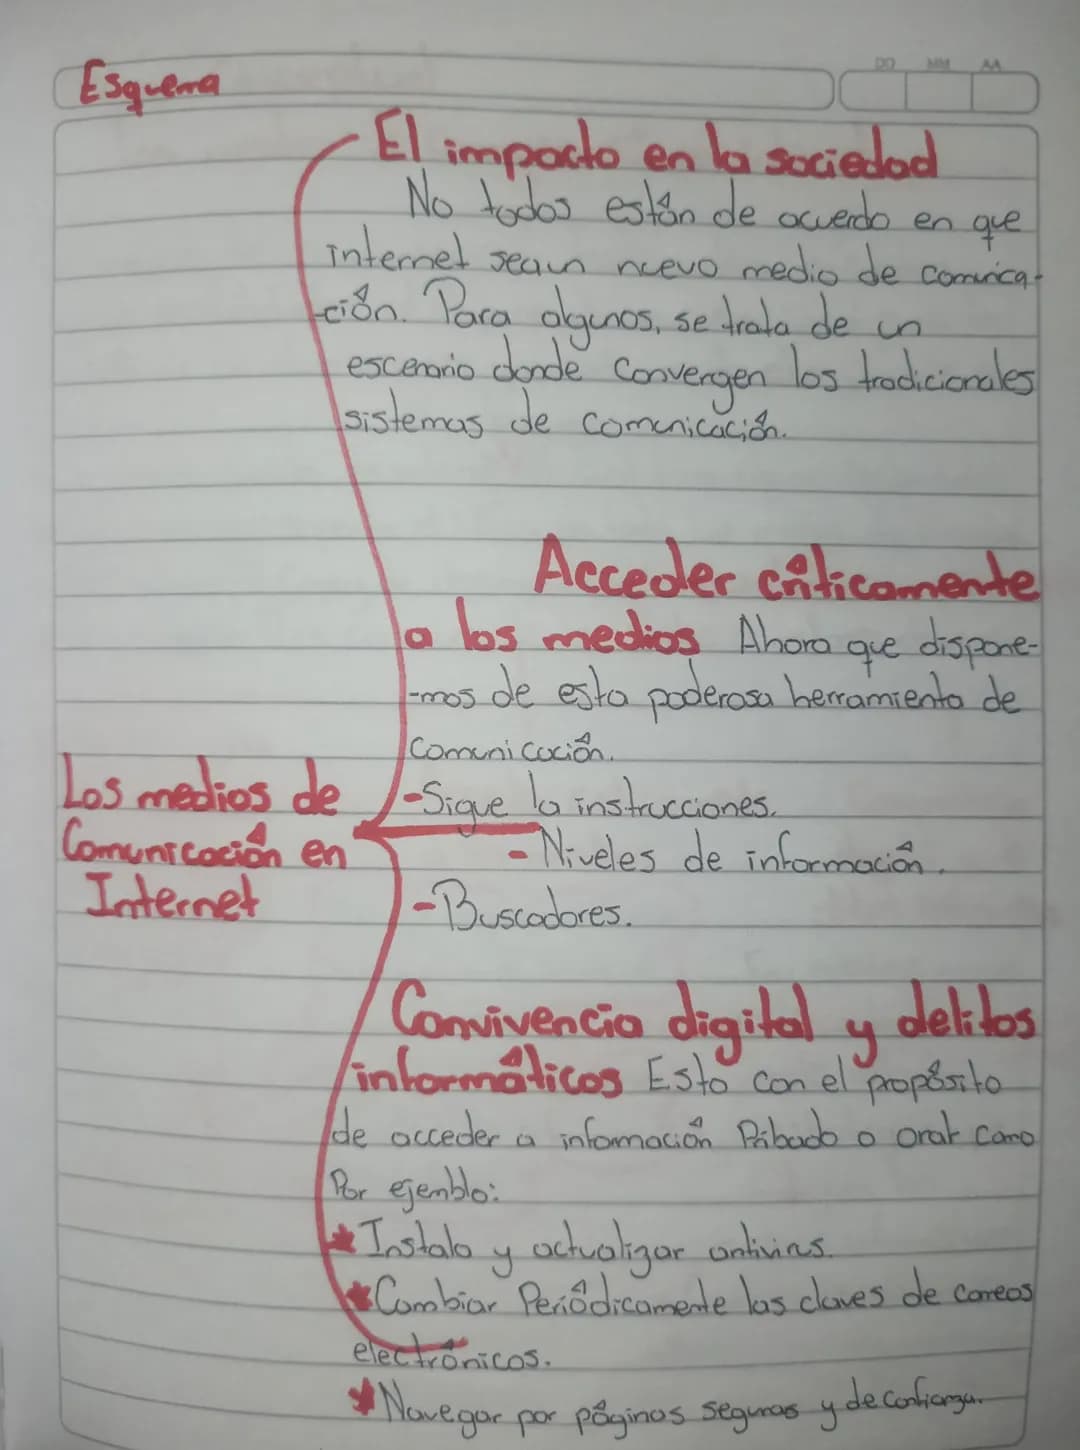 Esquema
DD MM AA
El impacto en la sociedad
No todos están de acuerdo en que
internet sea un nuevo medio de comunica-
-ción. Para algunos, se trata de un
escenario donde Convergen los tradicionales
sistemas de comunicación.
Acceder críticamente
a los medios Ahora que dispone-
-mos de esta poderosa herramienta de
Comunicación.
-Sigue la instrucciones.
- Niveles de información.
-Buscadores.
Los medios de
Comunicación en
Internet
Convivencia digital y delitos
informáticos Esto con el propósito
de acceder a información Pribado o orar como
Por ejemblo:
* Instala y actualizar antivirus.
* Cambiar Periódicamente las claves de correos
electrónicos.
* Navegar por páginas seguras y de confianza.